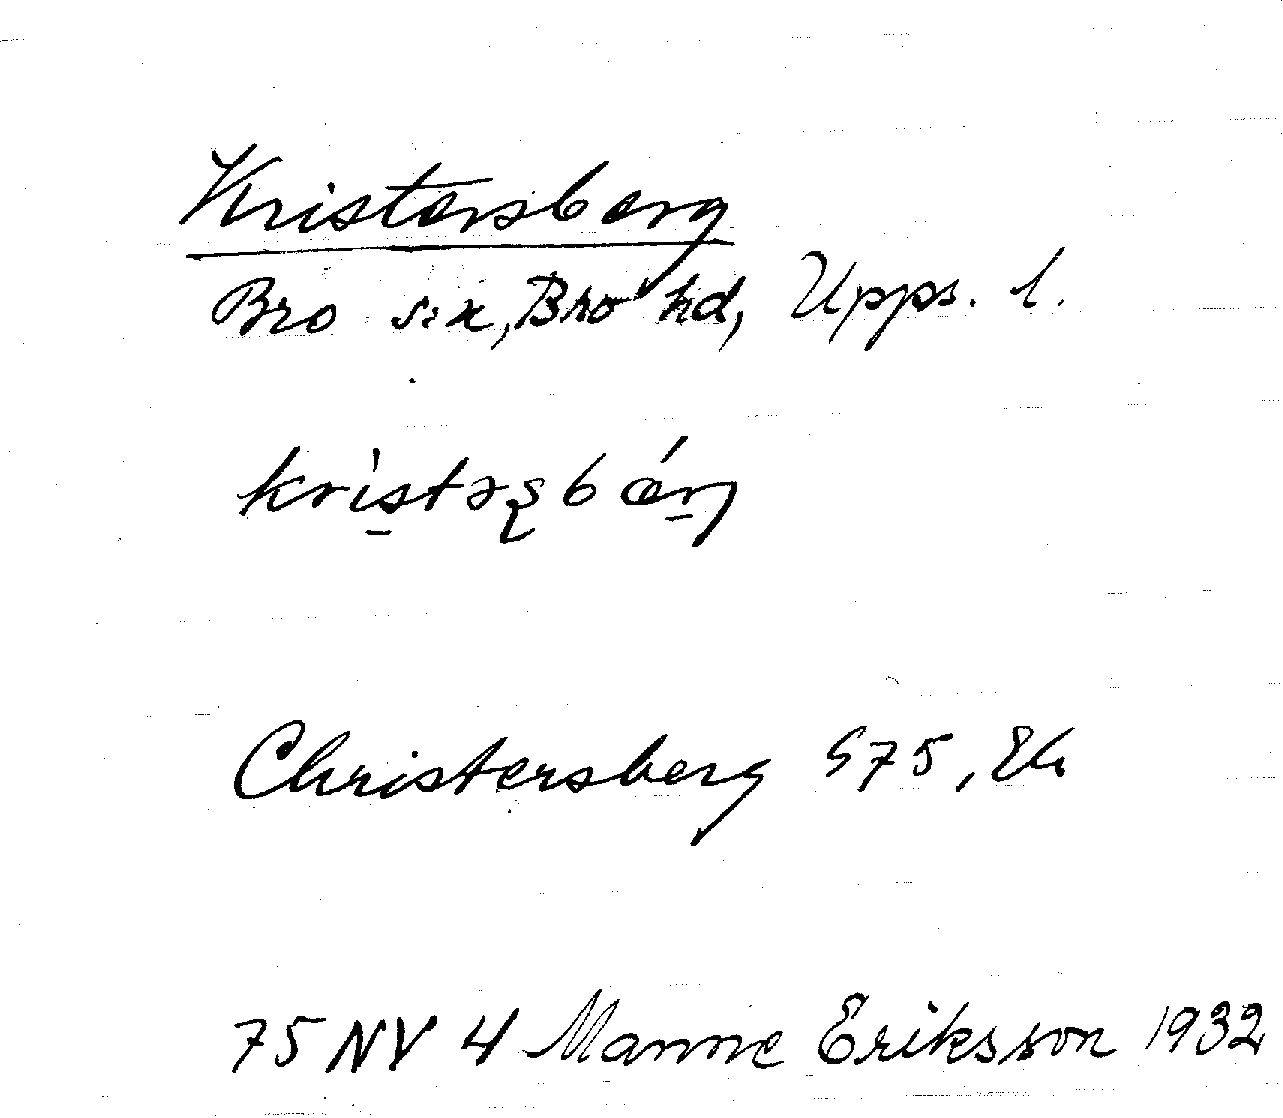 Kristersberg
Bro sn, Bro hd, Upps. l.
Christersberg S75, Ek
75 NV 4 Manne Eriksson 1932